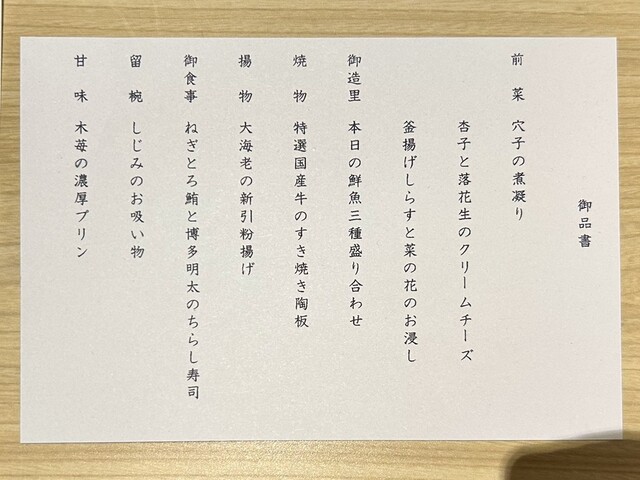 御品書
前菜 穴子の煮凝り
杏子と落花生のクリームチーズ
釜揚げしらすと菜の花のお浸し
御造里 本日の鮮魚三種盛り合わせ
焼物 特選国産牛のすき焼き陶板
揚物 大海老の新引粉揚げ
御食事 ねぎとろ鮪と博多明太のちらし寿司
留椀 しじみのお吸い物
甘味 木苺の濃厚プリン